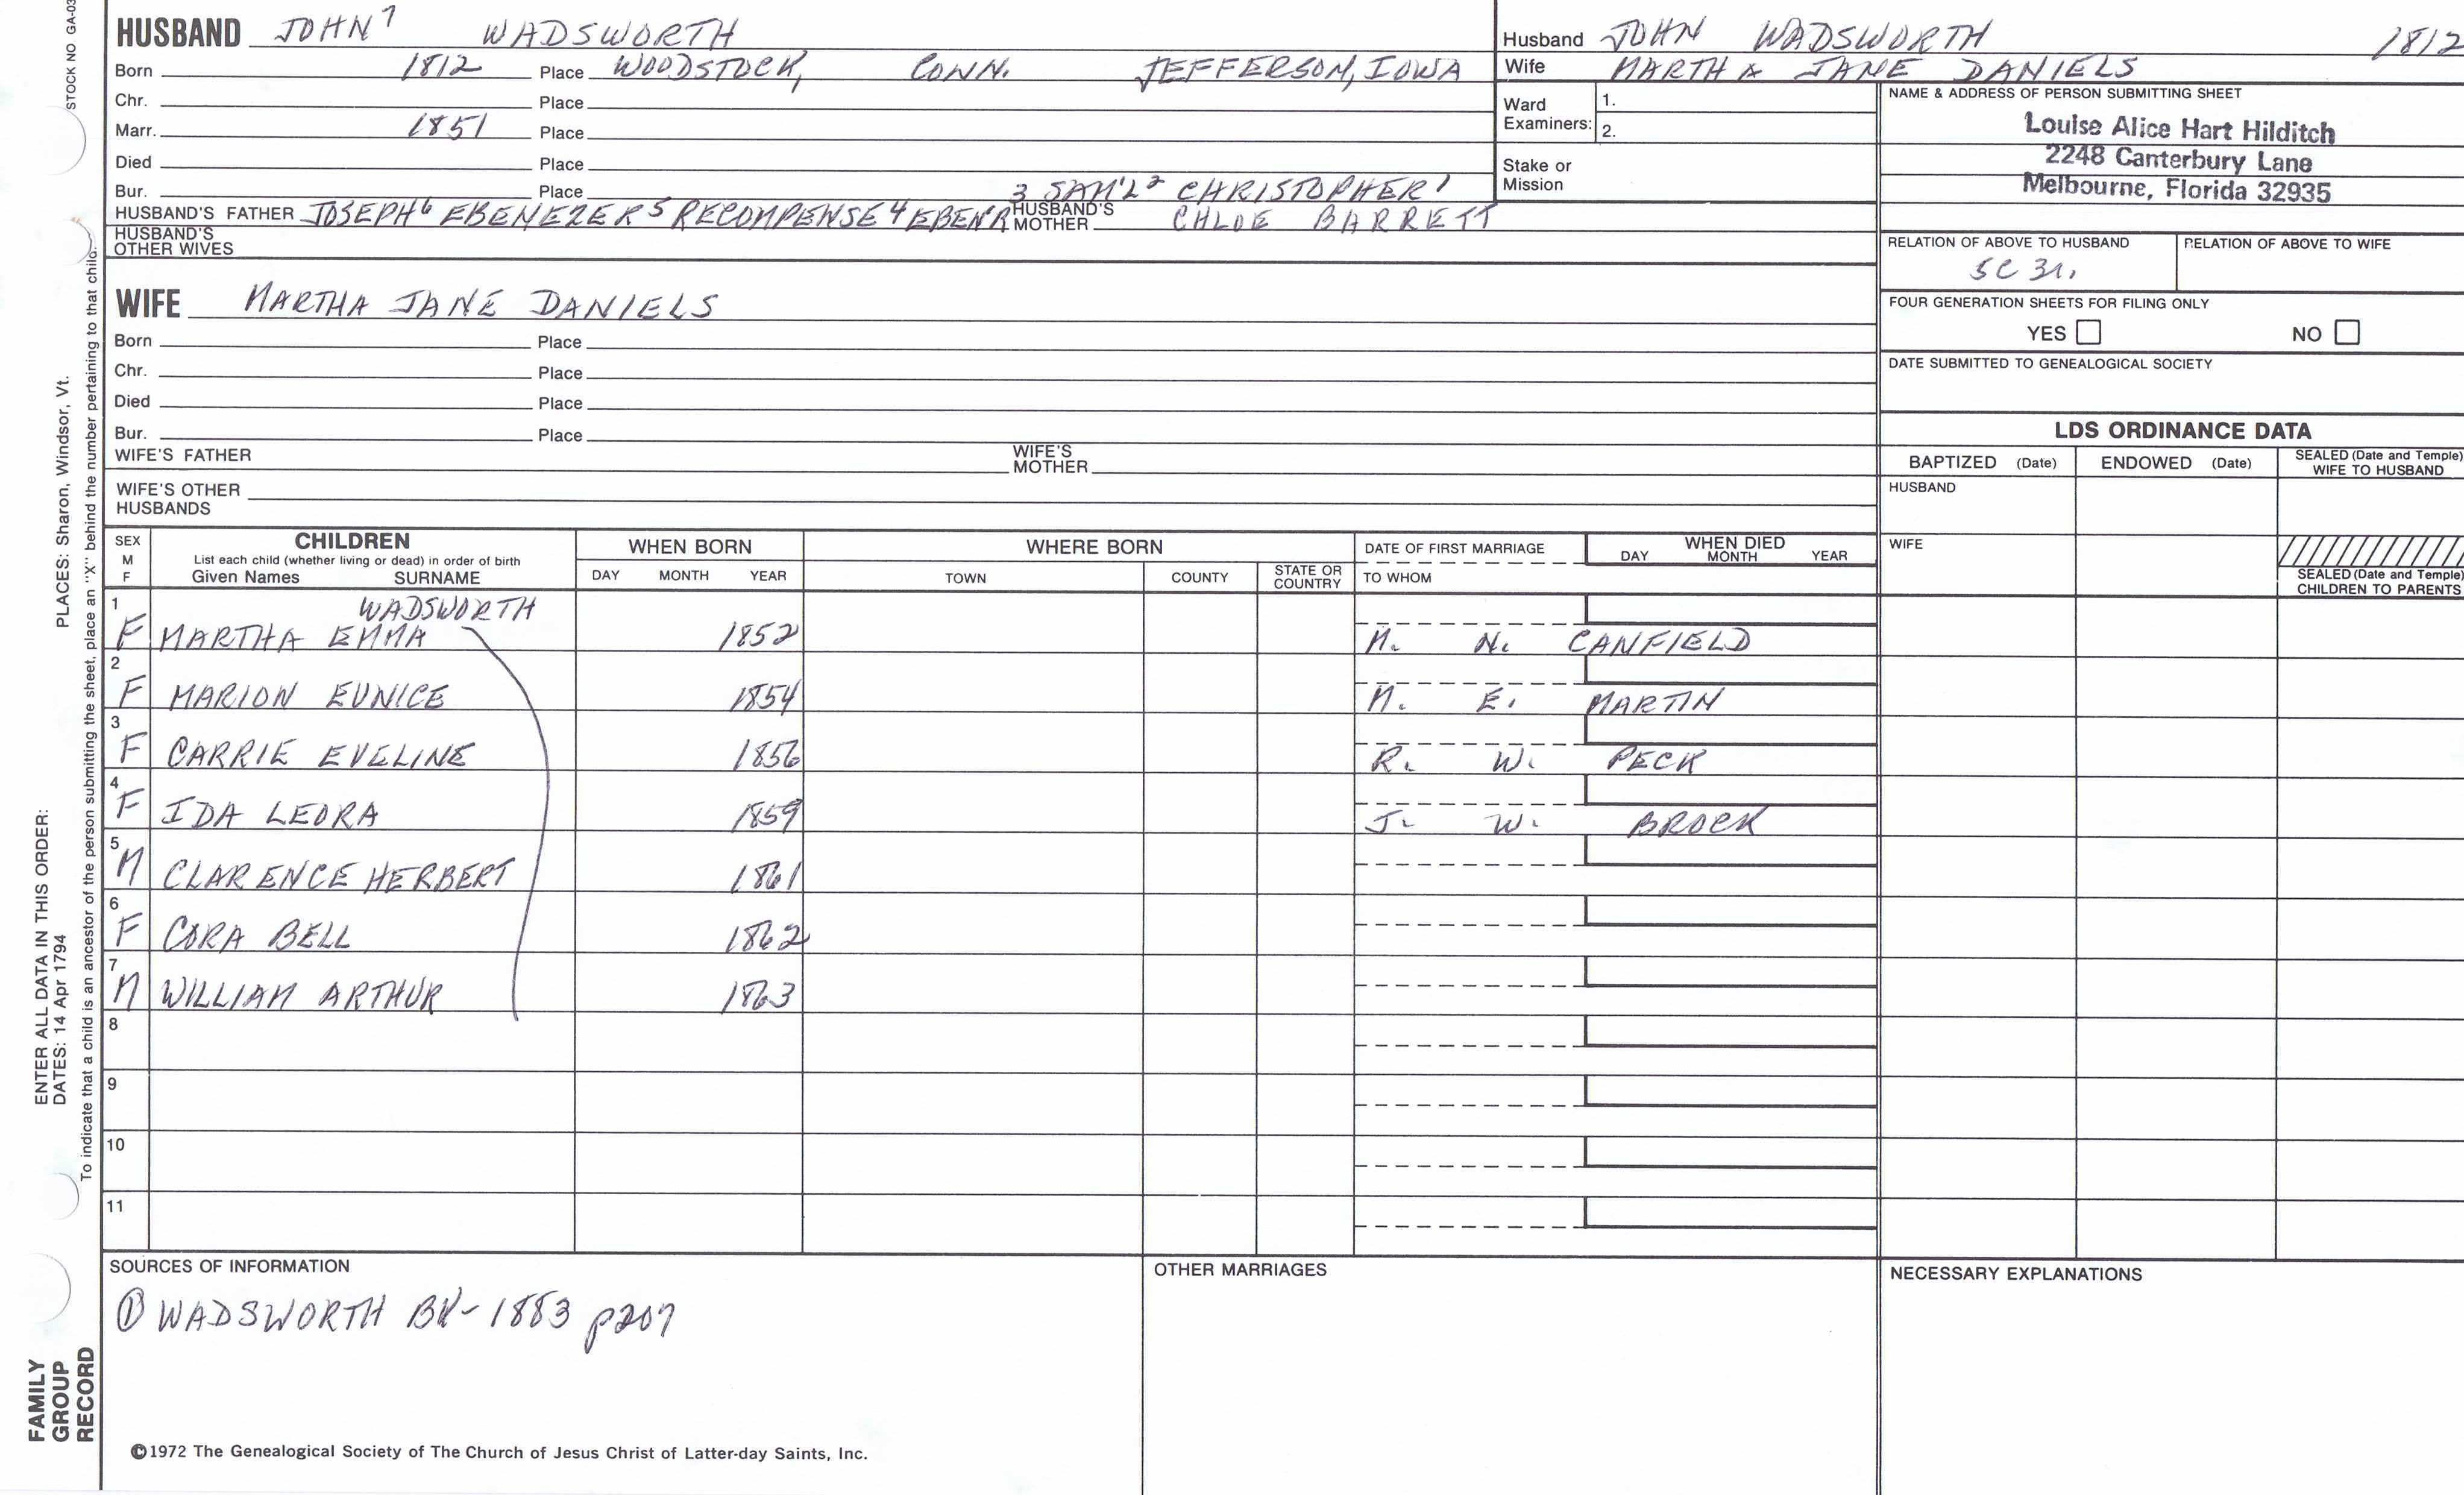 STOCK NO GA-03
HUSBAND JOHN⁷ WADSWORTH
Born 1812 Place WOODSTOCK, CONN. JEFFERSON, IOWA
Chr. Place
Marr. 1851 Place
Died Place
Bur. Place 3 SAM'L² CHRISTOPHER¹
HUSBAND'S FATHER JOSEPH⁶ EBENEZER⁵ RECOMPENSE⁴ EBEN'R HUSBAND'S MOTHER CHLOE BARRETT
HUSBAND'S OTHER WIVES
WIFE MARTHA JANE DANIELS
Born Place
Chr. Place
Died Place
Bur. Place
WIFE'S FATHER WIFE'S MOTHER
WIFE'S OTHER HUSBANDS
Husband JOHN WADSWORTH 1812
Wife MARTHA JANE DANIELS
Ward Examiners: 1.
2.
Stake or Mission
NAME & ADDRESS OF PERSON SUBMITTING SHEET
Louise Alice Hart Hilditch
2248 Canterbury Lane
Melbourne, Florida 32935
RELATION OF ABOVE TO HUSBAND RELATION OF ABOVE TO WIFE
5C 3r.
FOUR GENERATION SHEETS FOR FILING ONLY
YES NO
DATE SUBMITTED TO GENEALOGICAL SOCIETY
LDS ORDINANCE DATA
BAPTIZED (Date) ENDOWED (Date) SEALED (Date and Temple) WIFE TO HUSBAND
HUSBAND
WIFE
SEALED (Date and Temple) CHILDREN TO PARENTS
SEX M F CHILDREN WHEN BORN WHERE BORN DATE OF FIRST MARRIAGE WHEN DIED
List each child (whether living or dead) in order of birth
Given Names SURNAME DAY MONTH YEAR TOWN COUNTY STATE OR COUNTRY TO WHOM DAY MONTH YEAR
1 WADSWORTH
F MARTHA EMMA 1852 M. N. CANFIELD
2
F MARION EUNICE 1854 M. E. MARTIN
3
F CARRIE EVELINE 1856 R. W. PECK
4
F IDA LEORA 1859 J. W. BROCK
5
M CLARENCE HERBERT 1861
6
F CORA BELL 1862
7
M WILLIAM ARTHUR 1863
8
9
10
11
SOURCES OF INFORMATION
① WADSWORTH BK- 1883 p207
OTHER MARRIAGES
NECESSARY EXPLANATIONS
©1972 The Genealogical Society of The Church of Jesus Christ of Latter-day Saints, Inc.
FAMILY
GROUP
RECORD
ENTER ALL DATA IN THIS ORDER:
DATES: 14 Apr 1794 PLACES: Sharon, Windsor, Vt.
To indicate that a child is an ancestor of the person submitting the sheet, place an "X" behind the number pertaining to that child.